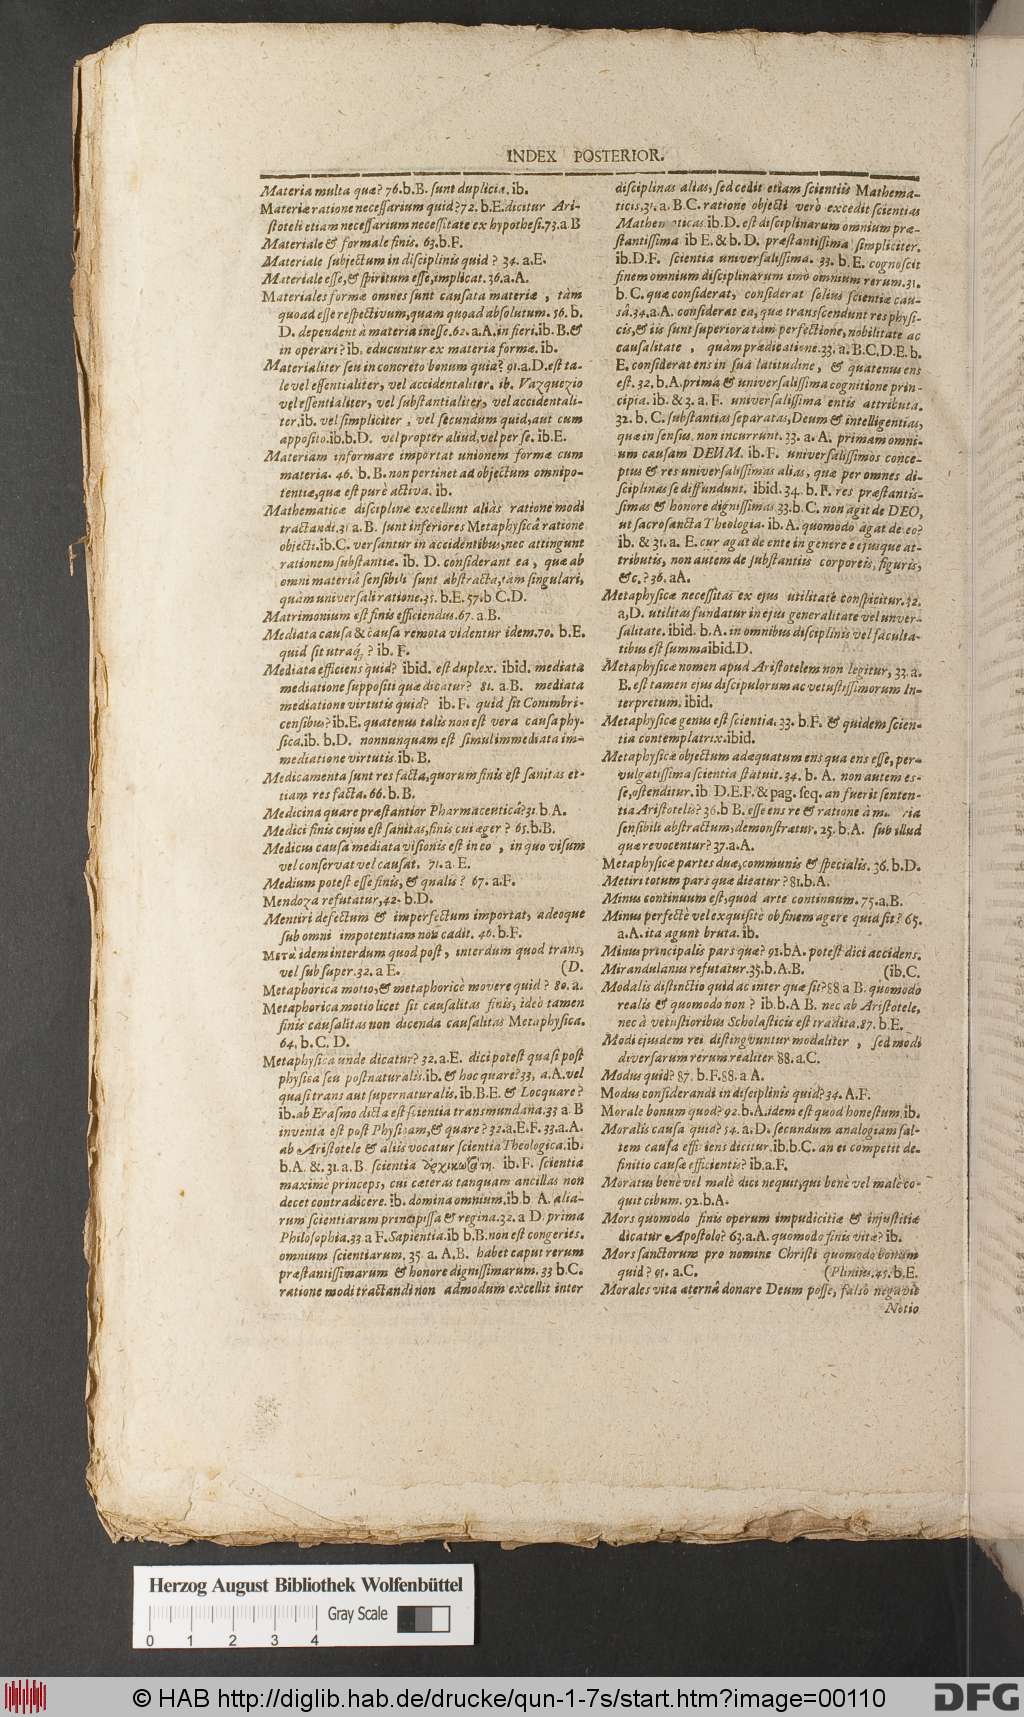 INDEX POSTERIOR.
Materia multa quæ? 76.b.B. sunt duplicia. ib.
Materiæ ratione necessarium quid? 72. b.E. dicitur Ari-
stoteli etiam necessarium necessitate ex hypothesi. 73.a B
Materiale & formale finis. 63.b.F.
Materiale subjectum in disciplinis quid? 34. a.E.
Materiale esse, & spiritum esse, implicat. 36.a.A.
Materiales formæ omnes sunt causata materiæ, tàm
quoad esse respectivum, quam quoad absolutum. 56. b.
D. dependent à materia in esse. 62. a.A. in fieri. ib. B. &
in operari? ib. educuntur ex materia formæ. ib.
Materialiter seu in concreto bonum quid? 91.a.D. est ta-
le vel essentialiter, vel accidentaliter. ib. Vazquezio
vel essentialiter, vel substantialiter, vel accidentali-
ter. ib. vel simpliciter, vel secundum quid, aut cum
apposito. ib.b.D. vel propter aliud, vel per se. ib.E.
Materiam informare importat unionem formæ cum
materia. 46. b. B. non pertinet ad objectum omnipo-
tentiæ, quæ est purè activa. ib.
Mathematicæ disciplinæ excellunt aliàs ratione modi
tractandi. 31 a. B. sunt inferiores Metaphysicâ ratione
objecti. ib.C. versantur in accidentibus, nec attingunt
rationem substantiæ. ib. D. considerant ea, quæ ab
omni materiâ sensibili sunt abstracta, tàm singulari,
quàm universali ratione. 35. b.E. 57. b C.D.
Matrimonium est finis efficiendus. 67. a B.
Mediata causa & causa remota videntur idem. 70. b.E.
quid sit utraq; ? ib. F.
Mediata efficiens quid? ibid. est duplex. ibid. mediata
mediatione suppositi quæ dicatur? 81. a B. mediata
mediatione virtutis quid? ib. F. quid sit Conimbri-
censibus? ib.E. quatenus talis non est vera causa phy-
sica. ib. b.D. nonnunquam est simul immediata im-
mediatione virtutis. ib. B.
Medicamenta sunt res facta, quorum finis est sanitas et-
tiam res facta. 66. b.B.
Medicina quare præstantior Pharmaceuticâ? 31. b A.
Medici finis cujus est sanitas, finis cui æger? 65. b.B.
Medicus causa mediata visionis est in eo, in quo visum
vel conservat vel causat. 71. a E.
Medium potest esse finis, & qualis? 67. a.F.
Mendoza refutatur, 42. b.D.
Mentiri defectum & imperfectum importat, adeoque
sub omni impotentiam non cadit. 46. b.F.
Μετὰ idem interdum quod post, interdum quod trans,
vel sub super. 32. a E. (D.
Metaphorica motio, & metaphoricè movere quid? 80. a.
Metaphorica motio licet sit causalitas finis, ideò tamen
finis causalitas non dicenda causalitas Metaphysica.
64. b.C. D.
Metaphysica unde dicatur? 32. a.E. dici potest quasi post
physica seu postnaturalis. ib. & hoc quare? 33, a.A. vel
quasi trans aut supernaturalis. ib.B.E. & Locquare?
ib. ab Erasmo dicta est scientia transmundana. 33 a B
inventa est post Physicam, & quare? 32. a.E.F. 33. a.A.
ab Aristotele & aliis vocatur scientia Theologica. ib.
b.A. &. 31. a. B. scientia ib. F. scientia
maximè princeps, cui cæteras tanquam ancillas non
decet contradicere. ib. domina omnium. ib b A. alia-
rum scientiarum principissa & regina. 32. a D. prima
Philosophia. 33 a F. Sapientia. ib b.B. non est congeries.
omnium scientiarum. 35. a. A.B. habet caput rerum
præstantissimarum & honore dignissimarum. 33 b.C.
ratione modi tractandi non admodum excellit inter
disciplinas alias, sed cedit etiam scientiis Mathema-
ticis. 31. a. B.C. ratione objecti verò excedit scientias
Mathematicas ib.D. est disciplinarum omnium præ-
stantissima ib E. & b. D. præstantissima simpliciter.
ib.D.F. scientia universalissima. 33. b.E. cognoscit
finem omnium disciplinarum imò omnium rerum. 31.
b. C. quæ considerat, considerat solius scientiæ cau-
sâ. 34. a.A. considerat ea, quæ transcendunt res physi-
cis, & iis sunt superiora tam perfectione, nobilitate ac
causalitate, quàm prædicatione. 33. a. B.C.D.E. b.
E. considerat ens in suâ latitudine, & quatenus ens
est. 32. b.A. prima & universalissima cognitione prin-
cipia. ib. & 3. a. F. universalissima entis attributa.
32. b. C. substantias separatas, Deum & intelligentias,
quæ in sensus non incurrunt. 33. a. A. primam omni-
um causam DEUM. ib. F. universalissimos conce-
ptus & res universalissimas alias, quæ per omnes di-
sciplinas se diffundunt. ibid. 34. b. F. res præstantis-
simas & honore dignissimas. 33.b.C. non agit de DEO,
ut sacrosancta Theologia. ib. A. quomodo agat de eo?
ib. & 31. a. E. cur agat de ente in genere ejusque at-
tributis, non autem de substantiis corporeis, figuris,
&c.? 36. a A.
Metaphysicæ necessitas ex ejus utilitate conspicitur. 32.
a,D. utilitas fundatur in ejus generalitate vel univer-
salitate. ibid. b.A. in omnibus disciplinis vel faculta-
tibus est summa ibid.D.
Metaphysicæ nomen apud Aristotelem non legitur, 33. a.
B. est tamen ejus discipulorum ac vetustissimorum In-
terpretum. ibid.
Metaphysicæ genus est scientia. 33. b.F. & quidem scien-
tia contemplatrix. ibid.
Metaphysicæ objectum adæquatum ens qua ens esse, per-
vulgatissima scientia statuit. 34. b. A. non autem es-
se, ostenditur. ib D.E.F. & pag. seq. an fuerit senten-
tia Aristotelis? 36.b B. esse ens re & ratione à materia
sensibili abstractum, demonstratur. 25. b.A. sub illud
quæ revocentur? 37. a.A.
Metaphysicæ partes duæ, communis & specialis. 36. b.D.
Metiri totum pars quæ dicatur? 81. b.A.
Minus continuum est, quod arte continuum. 75. a.B.
Minus perfectè vel exquisitè ob finem agere quid sit? 65.
a.A. ita agunt bruta. ib.
Minus principalis pars quæ? 91. bA. potest dici accidens.
Mirandulanus refutatur. 35. b.A.B. (ib.C.
Modalis distinctio quid ac inter quæ sit? 88 a B. quomodo
realis & quomodo non? ib.b.A B. nec ab Aristotele,
nec à vetustioribus Scholasticis est tradita. 87. b.E.
Modi ejusdem rei distingvuntur modaliter, sed modi
diversarum rerum realiter. 88. a.C.
Modus quid? 87. b.F. 88. a A.
Modus considerandi in disciplinis quid? 34. A.F.
Morale bonum quod? 92. b.A. idem est quod honestum. ib.
Moralis causa quid? 54. a.D. secundum analogiam sal-
tem causa efficiens dicitur. ib.b.C. an ei competit de-
finitio causæ efficientis? ib.a.F.
Moratus benè vel malè dici nequit, qui benè vel malè co-
quit cibum. 92. b.A.
Mors quomodo finis operum impudicitiæ & injustitiæ
dicatur Apostolo? 63. a.A. quomodo finis vitæ? ib.
Mors sanctorum pro nomine Christi quomodo bonum
quid? 91. a.C. (Plinius. 45. b.E.
Morales vita æternâ donare Deum posse, falsò negavit
Notio
Herzog August Bibliothek Wolfenbüttel
Gray Scale
0 1 2 3 4
© HAB http://diglib.hab.de/drucke/qun-1-7s/start.htm?image=00110
DFG